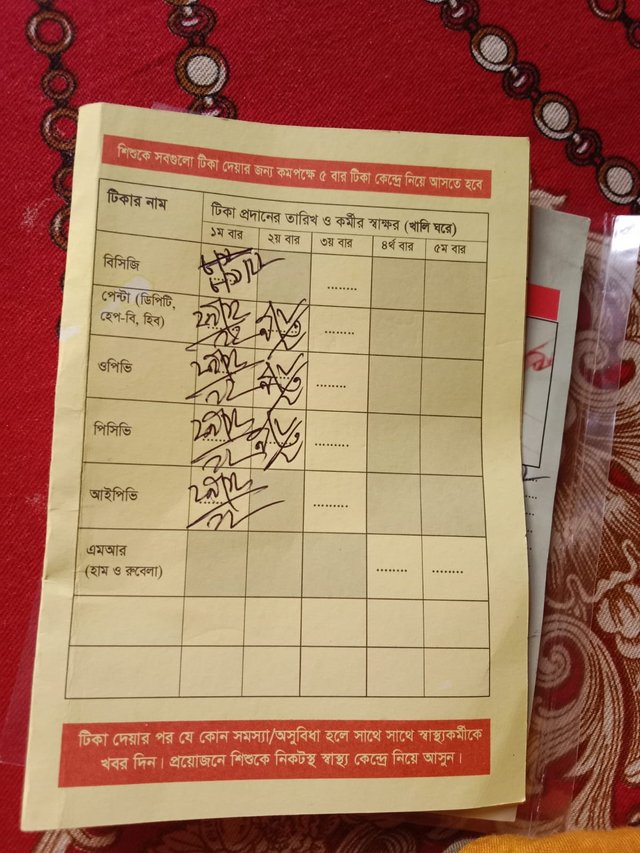 শিশুকে সবগুলো টিকা দেয়ার জন্য কমপক্ষে ৫ বার টিকা কেন্দ্রে নিয়ে আসতে হবে
টিকার নাম
টিকা প্রদানের তারিখ ও কর্মীর স্বাক্ষর (খালি ঘরে)
১ম বার ২য় বার ৩য় বার ৪র্থ বার ৫ম বার
বিসিজি ........
পেন্টা (ডিপিটি,
হেপ-বি, হিব) ........
ওপিভি ........
পিসিভি .........
আইপিভি .........
এমআর
(হাম ও রুবেলা) ........ ........
টিকা দেয়ার পর যে কোন সমস্যা/অসুবিধা হলে সাথে সাথে স্বাস্থ্যকর্মীকে
খবর দিন। প্রয়োজনে শিশুকে নিকটস্থ স্বাস্থ্য কেন্দ্রে নিয়ে আসুন।